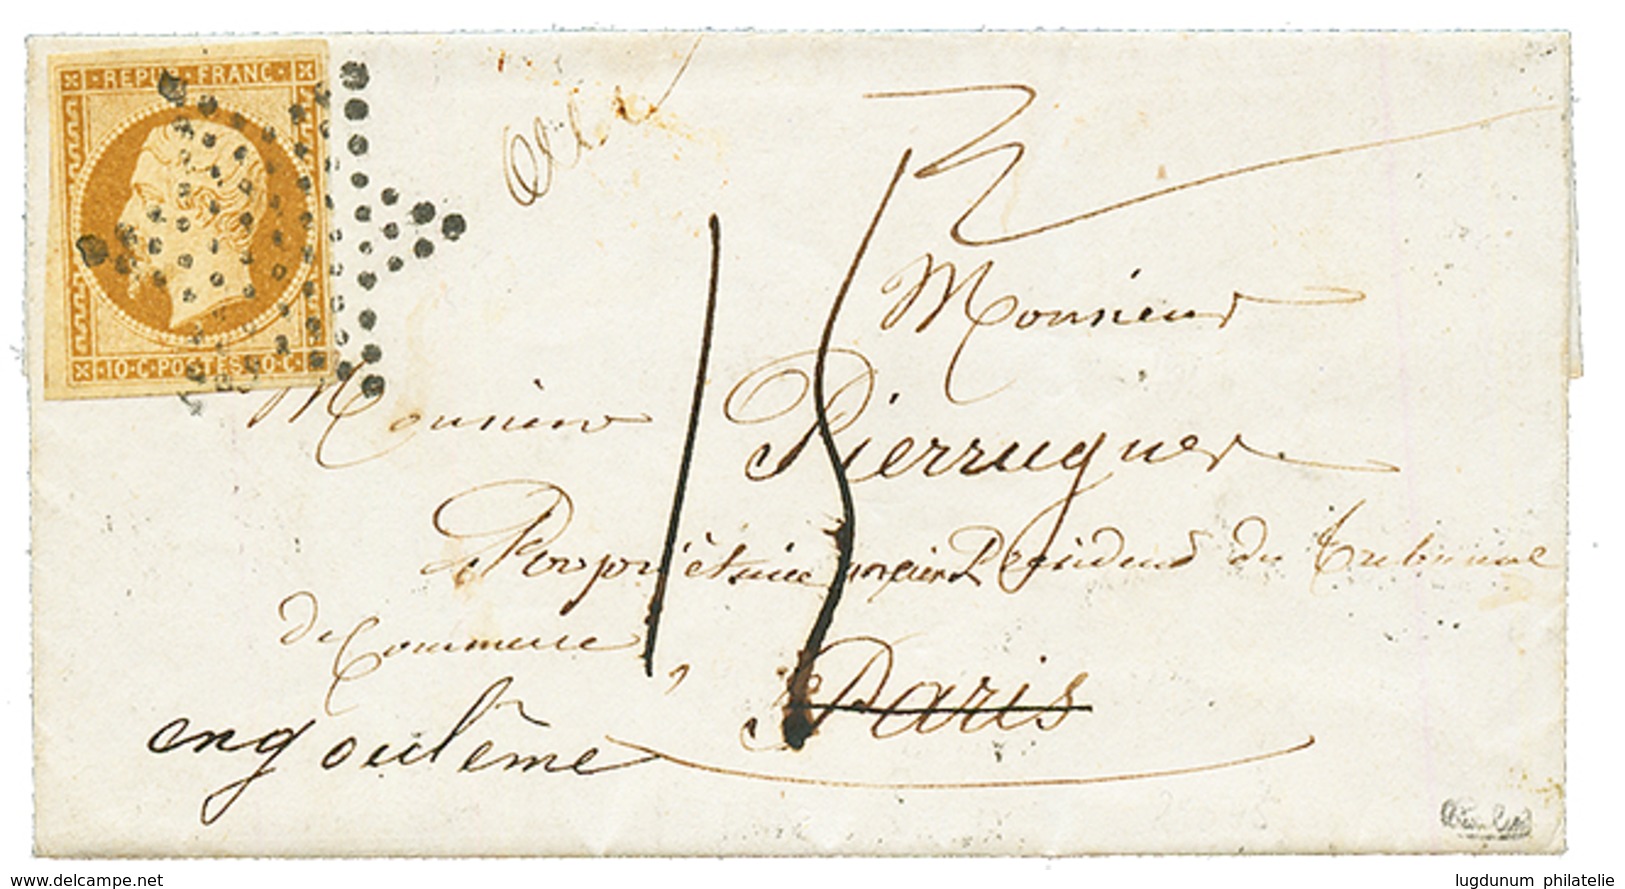 REPUB · FRANC ·
10 · C · POSTES · 10 · C ·
15
Monsieur
Monsieur
Pierrugues
Propriétaire ancien Président du Tribunal
de Commerce,
Paris
engoulême
www.delcampe.net
lugdunum philatelie